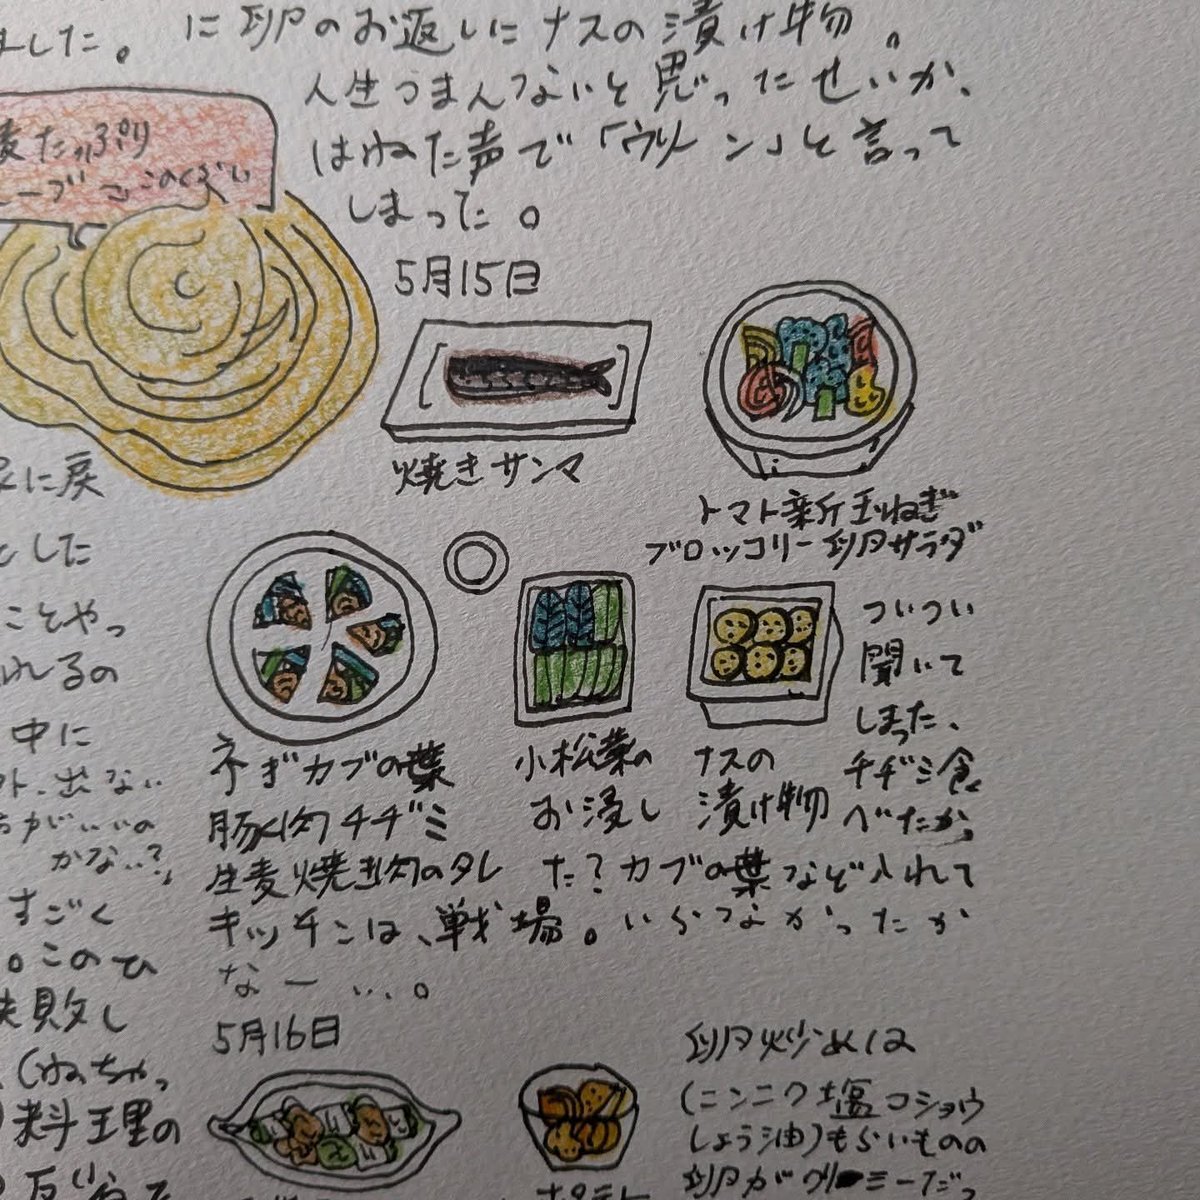 ました。
に卵のお返しにナスの漬け物。
人生つまんないと思ったせいか、
はねた声で「ウリーン」と言って
しまった。
麦たっぷり
5月15日
焼きサンマ
トマト新玉ねぎ
ブロッコリー卵サラダ
に戻
とした
ことやっ
れるの
中に
出ない
がいいの
かな…?」
すごく
。このひ
失敗し
くねちゃっ
料理の
ネギカブの葉
豚肉チヂミ
生麦焼き肉のタレ
小松菜の
お浸し
ナスの
漬け物
ついつい
聞いて
しまった、
チヂミ食
べたかっ
た?カブの葉など入れて
キッチンは、戦場。いらなかったか
なー…。
5月16日
卵炒めは
(ニンニク塩コショウ
しょう油)もらいものの
卵がクリーミーだっ